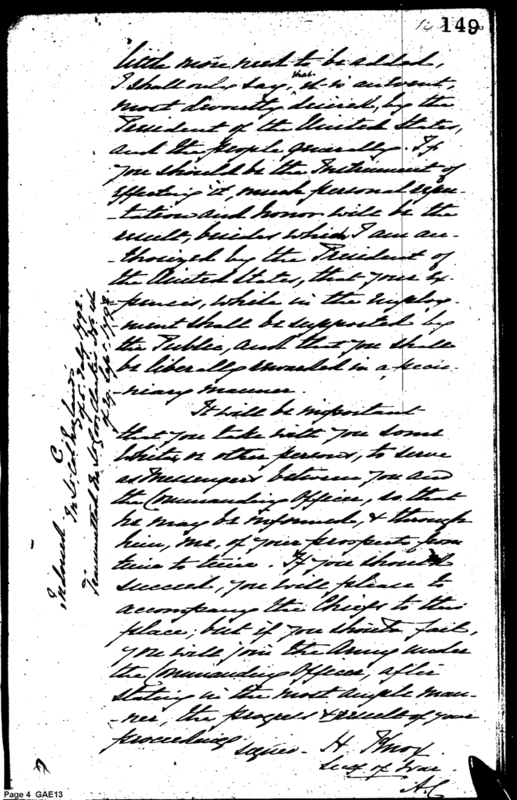 149
little more need to be added,
I shall only say, that it is an event,
most devoutly desired, by the
President of the United States,
and the people generally. If
you should be the Instrument of
effecting it, much personal repu-
-tation and honor will be the
result, besides which I am au-
thorized by the President of
the United States, that your ex-
-pences, while in the employ-
-ment shall be supported by
the Public, and that you shall
be liberally rewarded in a pecu-
-niary manner
It will be important
that you take with you some
white, or other persons, to serve
as Messengers between you and
the Commanding Officer, so that
he may be informed, & through
him, me, of your prospects from
time to time. If you should
succeed, you will please to
accompany the Chiefs to this
place; but if you should fail,
you will join the Army under
the Commanding Officer, after
stating in the most ample man-
-ner, the progress & result of your
proceedings
signed H Knox
Secy of War
Inclosed C
In Lt. Col
of 5 July 1792
Transmitted in
of
Page 4 GAE13